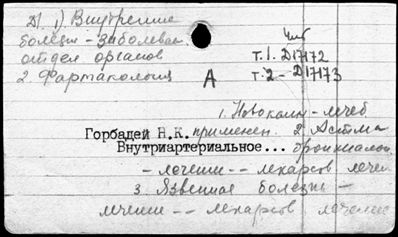 Д1. 1) Внутренние
болезни - заболеван. Чит
отдел органов т.1. Д17172
2. Фармакология А т.2 - Д17173
1. Новокаин - лечеб
Горбадей Н.К. применен. 2. Астма
Внутриартериальное... бронхиальн
- лечение -- лекарств лечен
3. Язвенная болезнь -
лечение -- лекарств лечение